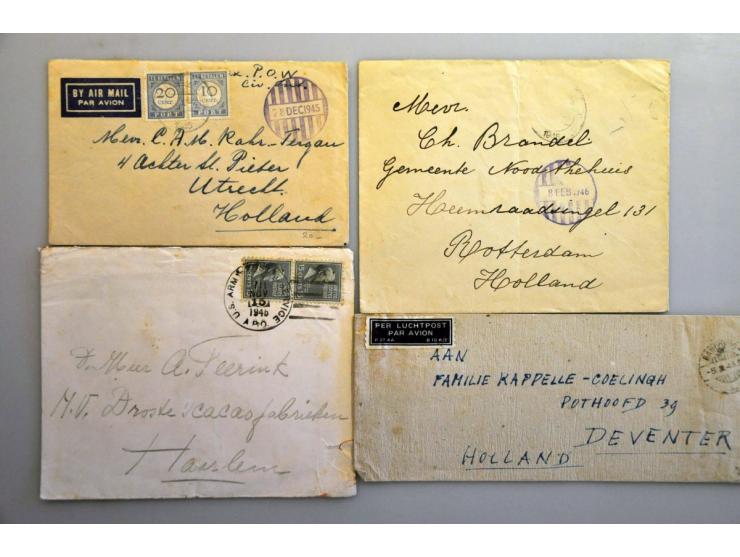 BY AIR MAIL
PAR AVION
TE BETALEN
20
CENT
PORT
TE BETALEN
10
CENT
PORT
P.O.W.
Civ.
28 DEC 1945
Mevr. C. A. M. Rahr-Tergau
4 Achter St. Pieter
Utrecht
Holland
20-
Mevr.
Ch. Brandel
Gemeente Noodziekenhuis
Heemraadsingel 131
Rotterdam
Holland
8 FEB 1946
U.S. ARMY
SERVICE
NOV
15
1945
A.P.O.
De Heer A. Teerink
N.V. Droste's cacaofabrieken
Haarlem
PER LUCHTPOST
PAR AVION
AAN
FAMILIE KAPPELLE-COELINGH
POTHOOFD 39
DEVENTER
HOLLAND